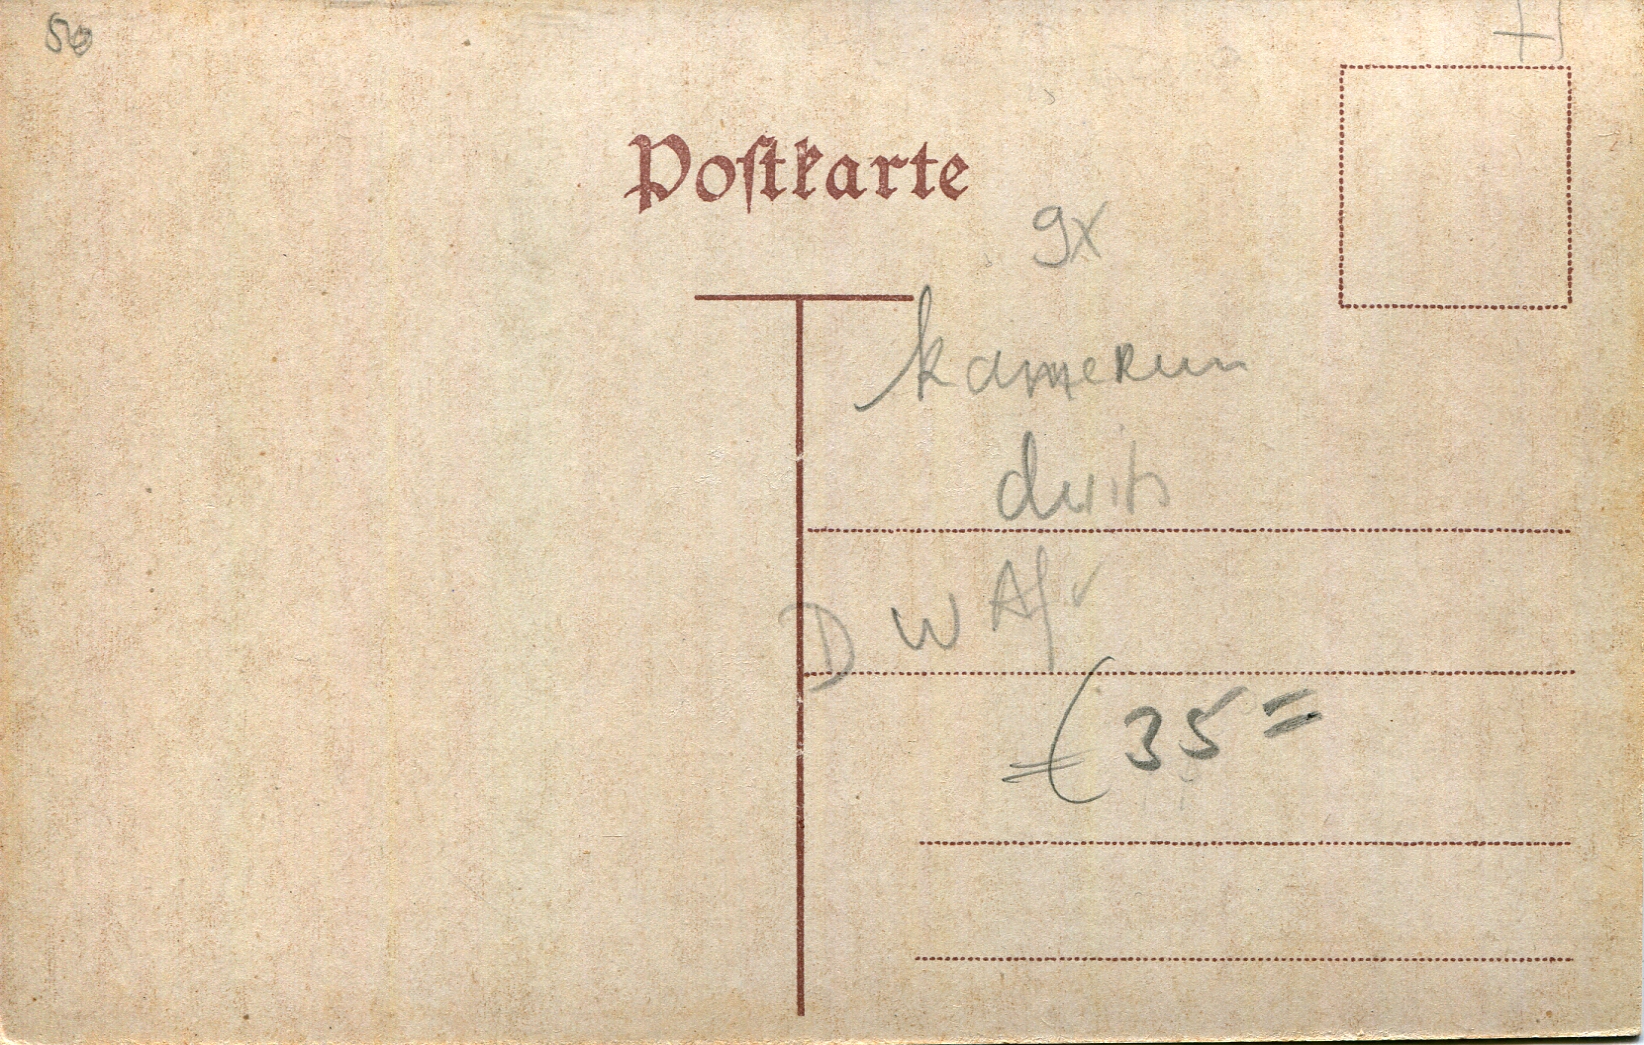 50
Poſtkarte
9x
Kamerun
D W Afr
35 =